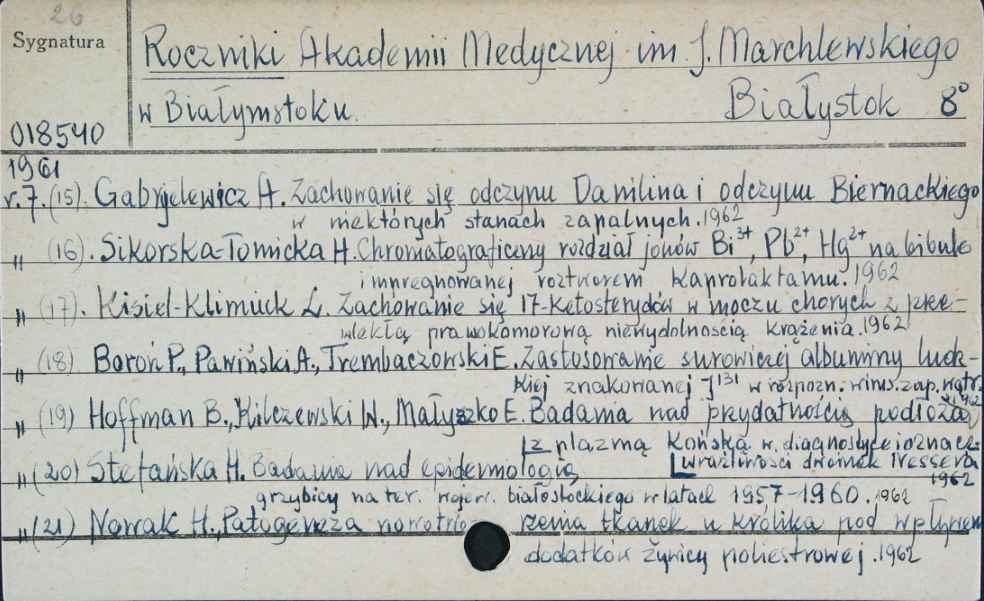 26
Sygnatura
Roczniki Akademii Medycznej im. J. Marchlewskiego
w Białymstoku. Białystok 8°
018540
1961
r.7. (15). Gabryelewicz A. Zachowanie się odczynu Danilina i odczynu Biernackiego
w niektórych stanach zapalnych. 1962
" (16). Sikorska-Tomicka H. Chromatograficzny rozdział jonów Bi³⁺, Pb²⁺, Hg²⁺ na bibule
impregnowanej roztworem Kaprolaktamu. 1962
" (17). Kisiel-Klimiuck L. Zachowanie się 17-Ketosterydów w moczu chorych z prze-
wlekłą prawokomorową niewydolnością krążenia. 1962
" (18) Boroń P., Pawiński A., Trembaczowski E. Zastosowanie surowiczej albuminy ludz-
kiej znakowanej J¹³¹ w rozpozn. wirus. zap. wątr.
" (19) Hoffman B., Kilczewski W., Małyszko E. Badania nad przydatnością podłoża
z plazmą Końską w diagnostyce i oznacz.
" (20) Stefańska H. Badania nad epidermologią wrażliwości dwoinek Nessera
1962
grzybicy na ter. wojew. białostockiego w latach 1957-1960. 1962
" (21) Nowak H., Patogeneza nowotwo rzenia tkanek u królika pod wpływem
dodatków żywicy poliestrowej. 1962